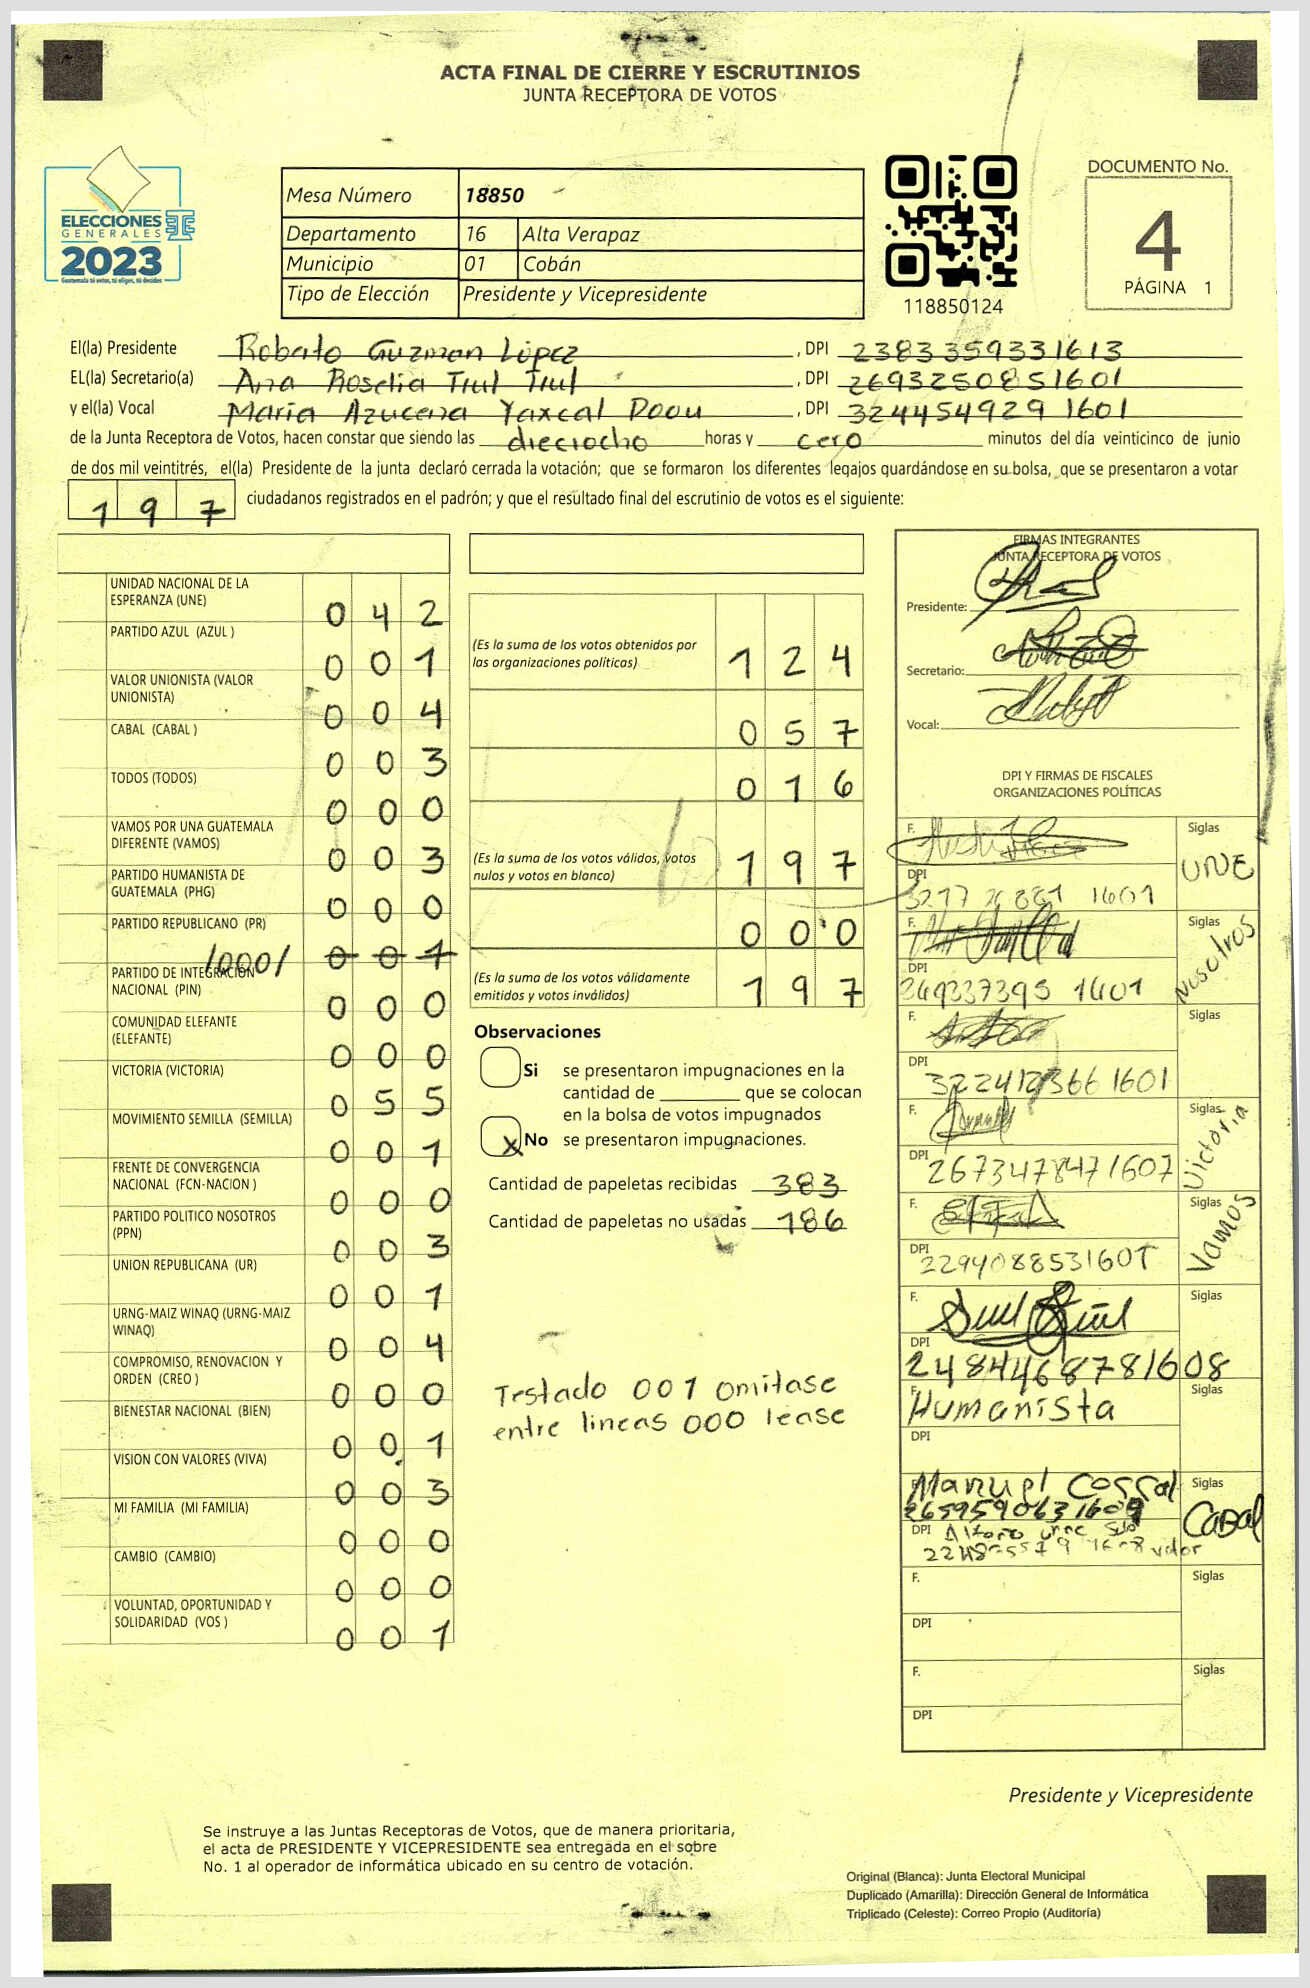 ACTA FINAL DE CIERRE Y ESCRUTINIOS
JUNTA RECEPTORA DE VOTOS
ELECCIONES
GENERALES
2023
Guatemala tú votas, tú eliges, tú decides
Mesa Número 18850
Departamento 16 Alta Verapaz
Municipio 01 Cobán
Tipo de Elección Presidente y Vicepresidente
118850124
DOCUMENTO No.
4
PÁGINA 1
El(la) Presidente Robato Guzman López, DPI 2383359331613
EL(la) Secretario(a) Ana Roselia Tiul Tiul, DPI 2693250851601
y el(la) Vocal Maria Azucena Yaxcal Poou, DPI 3244549291601
de la Junta Receptora de Votos, hacen constar que siendo las dieciocho horas y cero minutos del día veinticinco de junio
de dos mil veintitrés, el(la) Presidente de la junta declaró cerrada la votación; que se formaron los diferentes legajos guardándose en su bolsa, que se presentaron a votar
197 ciudadanos registrados en el padrón; y que el resultado final del escrutinio de votos es el siguiente:
UNIDAD NACIONAL DE LA
ESPERANZA (UNE) 042
PARTIDO AZUL (AZUL ) 001
VALOR UNIONISTA (VALOR
UNIONISTA) 004
CABAL (CABAL ) 003
TODOS (TODOS) 000
VAMOS POR UNA GUATEMALA
DIFERENTE (VAMOS) 003
PARTIDO HUMANISTA DE
GUATEMALA (PHG) 000
PARTIDO REPUBLICANO (PR) 001
/000/
PARTIDO DE INTEGRACION
NACIONAL (PIN) 000
COMUNIDAD ELEFANTE
(ELEFANTE) 000
VICTORIA (VICTORIA) 055
MOVIMIENTO SEMILLA (SEMILLA) 001
FRENTE DE CONVERGENCIA
NACIONAL (FCN-NACION ) 000
PARTIDO POLITICO NOSOTROS
(PPN) 003
UNION REPUBLICANA (UR) 001
URNG-MAIZ WINAQ (URNG-MAIZ
WINAQ) 004
COMPROMISO, RENOVACION Y
ORDEN (CREO ) 000
BIENESTAR NACIONAL (BIEN) 001
VISION CON VALORES (VIVA) 003
MI FAMILIA (MI FAMILIA) 000
CAMBIO (CAMBIO) 000
VOLUNTAD, OPORTUNIDAD Y
SOLIDARIDAD (VOS ) 001
(Es la suma de los votos obtenidos por
las organizaciones políticas) 124
057
016
(Es la suma de los votos válidos, votos
nulos y votos en blanco) 197
000
(Es la suma de los votos válidamente
emitidos y votos inválidos) 197
Observaciones
Si se presentaron impugnaciones en la
cantidad de ________ que se colocan
en la bolsa de votos impugnados
x No se presentaron impugnaciones.
Cantidad de papeletas recibidas 383
Cantidad de papeletas no usadas 186
Testado 001 omitase
entre lineas 000 lease
FIRMAS INTEGRANTES
JUNTA RECEPTORA DE VOTOS
Presidente:
Secretario:
Vocal:
DPI Y FIRMAS DE FISCALES
ORGANIZACIONES POLÍTICAS
F. Siglas
UNE
DPI
1601
F. Siglas
Nosotros
DPI
249337395 1601
F. Siglas
DPI
3224123661601
F. Siglas
Victoria
DPI
2673478471607
F. Siglas
Vamos
DPI
2294088531601
F. Siglas
DPI
2484468781608
F. Siglas
Humanista
DPI
Manuel Corral Siglas
2659590631609 Cabal
DPI
valor
F. Siglas
DPI
F. Siglas
DPI
Presidente y Vicepresidente
Se instruye a las Juntas Receptoras de Votos, que de manera prioritaria,
el acta de PRESIDENTE Y VICEPRESIDENTE sea entregada en el sobre
No. 1 al operador de informática ubicado en su centro de votación.
Original (Blanca): Junta Electoral Municipal
Duplicado (Amarilla): Dirección General de Informática
Triplicado (Celeste): Correo Propio (Auditoría)